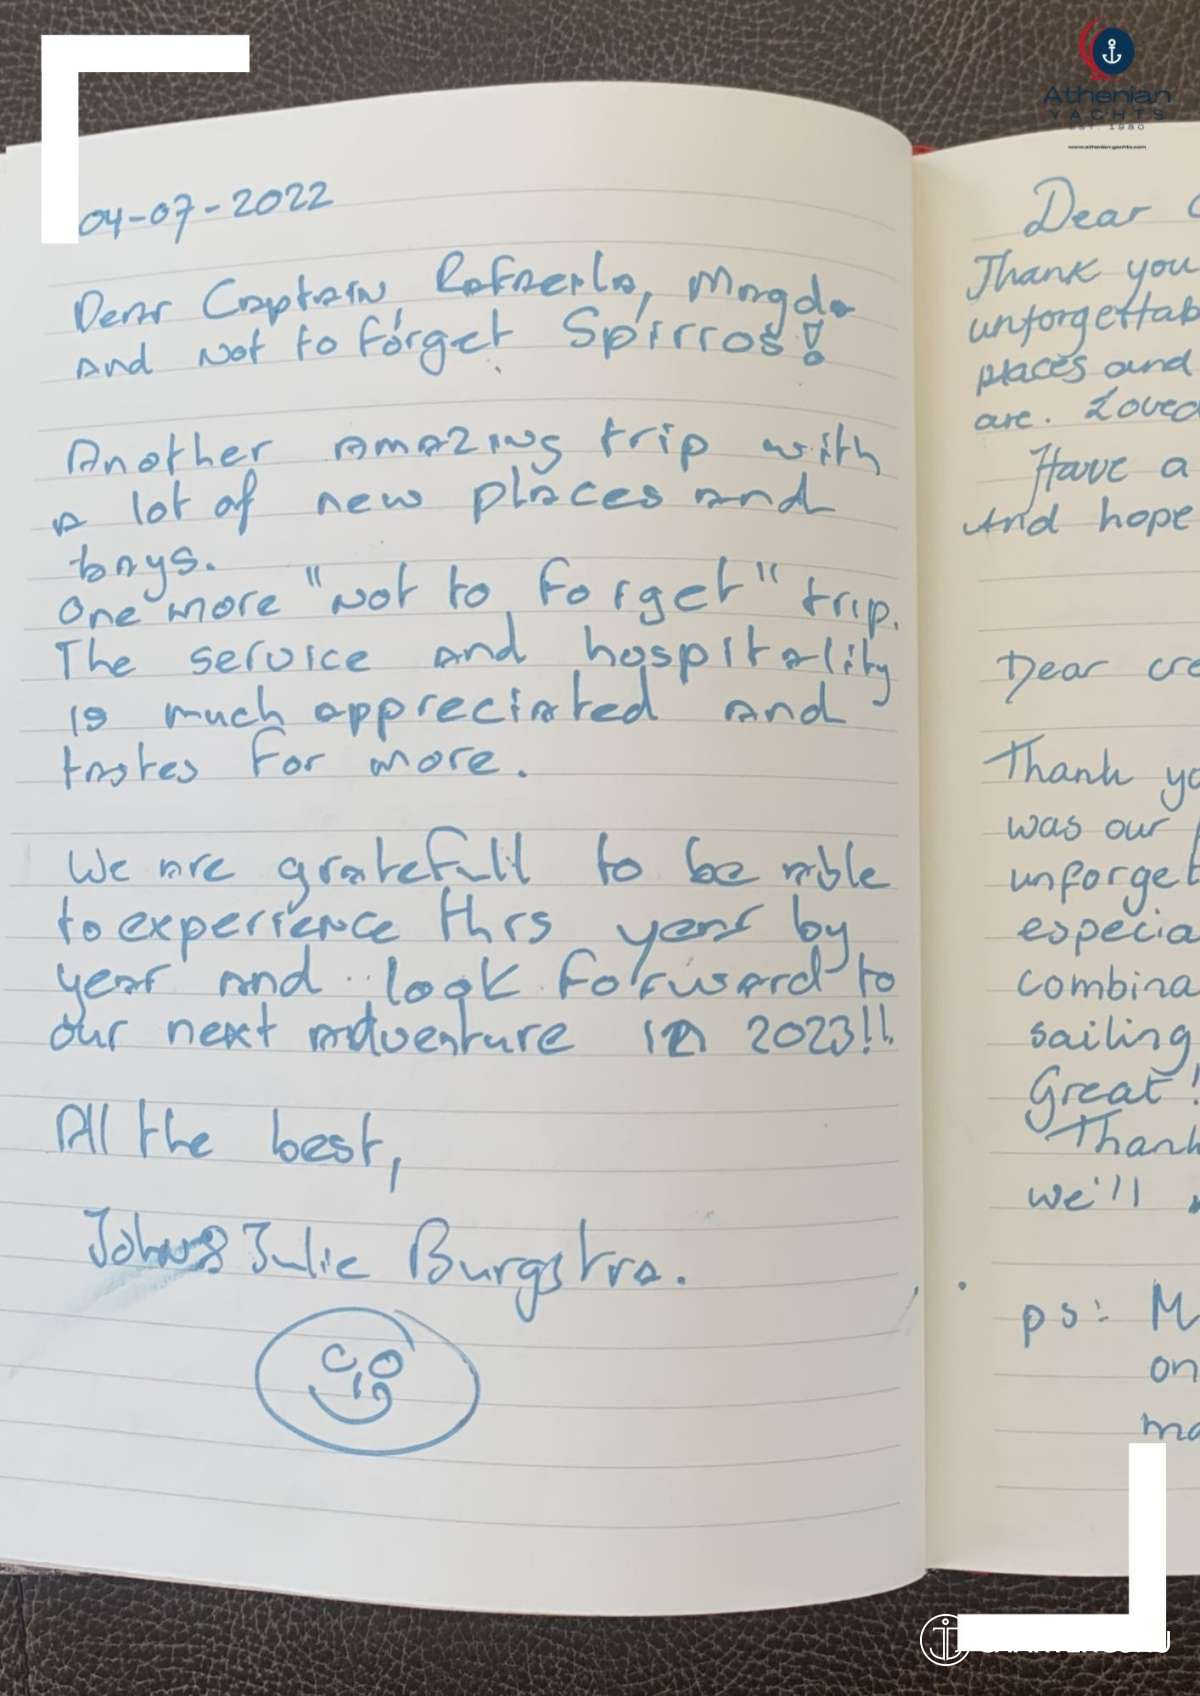 Athenian
YACHTS
EST. 1980
www.athenian-yachts.com
04-07-2022
Dear Captain Rafaerla, Magda
and not to forget Spirros!
Another amazing trip with
a lot of new places and
bays.
One more "not to forget" trip.
The service and hospitality
is much appreciated and
tastes for more.
We are gratefull to be able
to experience this year by
year and look forward to
our next adventure in 2023!!
All the best,
John & Julie Burgstra.
Dear
Thank you
unforgettab
places and
are. Loved
Have a
And hope
Dear cre
Thank yo
was our
unforget
especia
combina
sailing
Great!
Thank
we'll
ps: M
on
ma